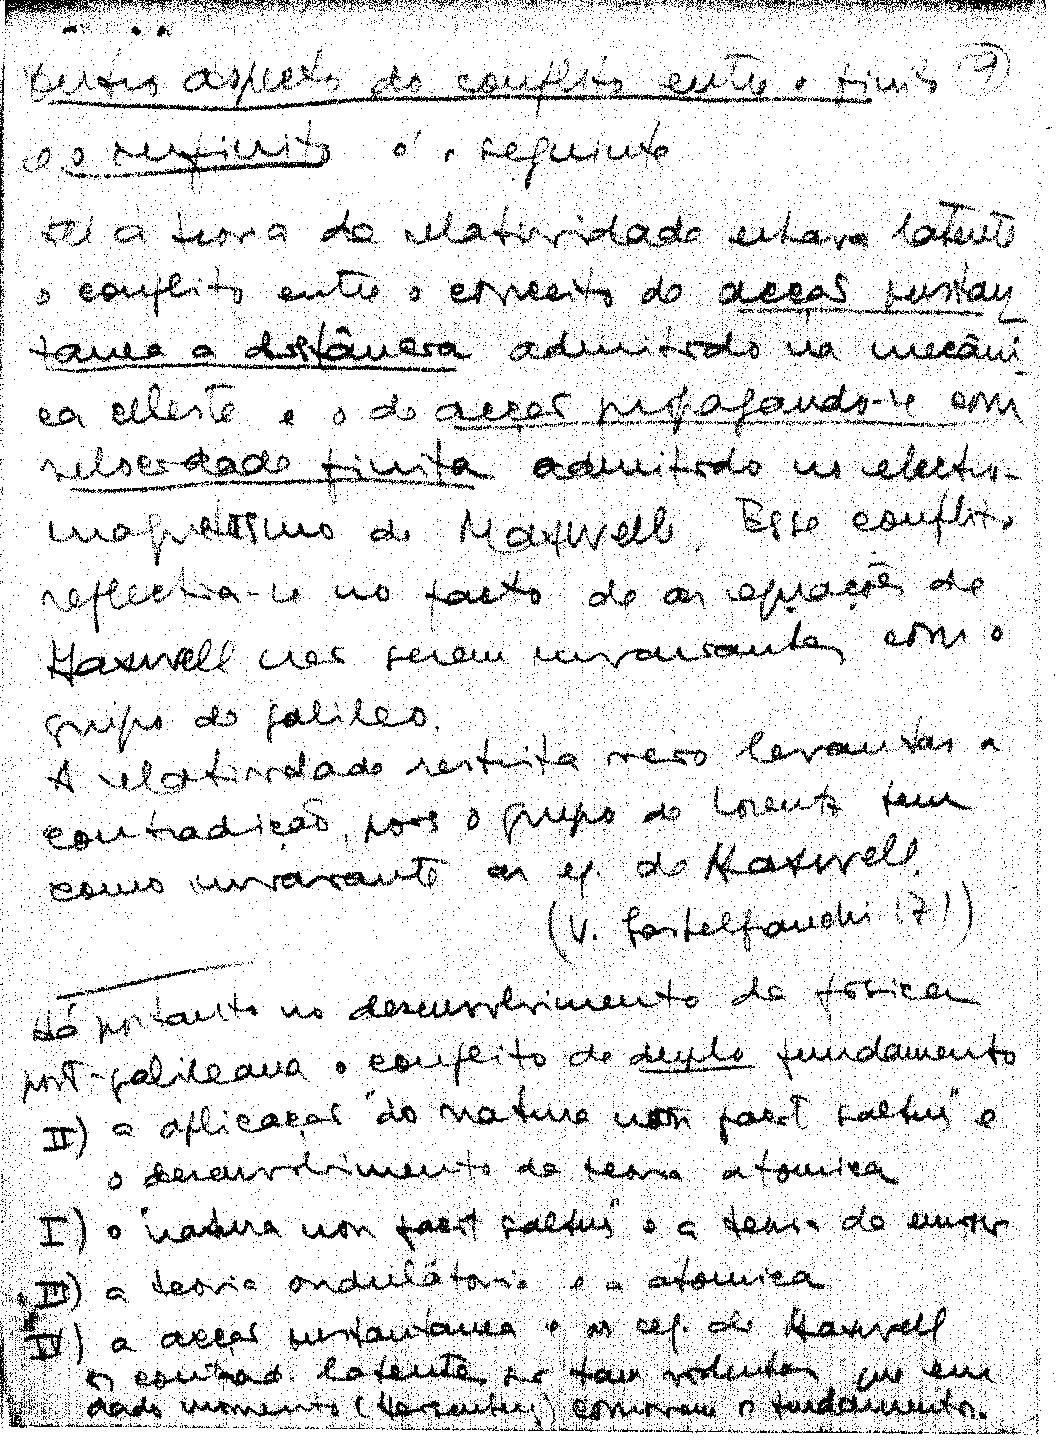 Outro aspecto do conflito entre o finito 9)
e o infinito é o seguinte
a teoria da relatividade estava latente
o conflito entre o conceito de acção instan
tanea a distância admitido na mecâni
ca celeste e o de acção propagando-se com
velocidade finita admitido no electro-
magnetismo de Maxwell. Esse conflito
reflectia-se no facto de as equações de
Maxwell não serem invariantes com o
grupo de Galileo.
A relatividade restrita veio levantar a
contradição, pois o grupo de Lorentz tem
como invariante as eq. de Maxwell.
(V. (7))
Há portanto no desenvolvimento da física
post-galileana o conflito do duplo fundamento
II) a aplicação "do natura non facit saltus" e
o desenvolvimento da teoria atomica
I) o "natura non facit saltus" e a teoria de
III) a teoria ondulátoria e a atomica
IV) a acção instantanea e as eq. de Maxwell
as contrad. latentes se tam que em
dado momento ( ) comovem o fundamento.